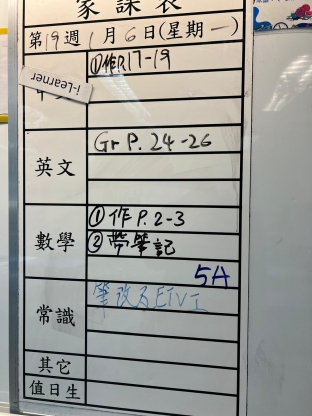 家課表
第19週1月6日(星期一)
①作P.17-19
i-Learner
英文
Gr P. 24-26
數學
①作 P. 2-3
②帶筆記
5A
常識
筆改及ETV工
其它
值日生